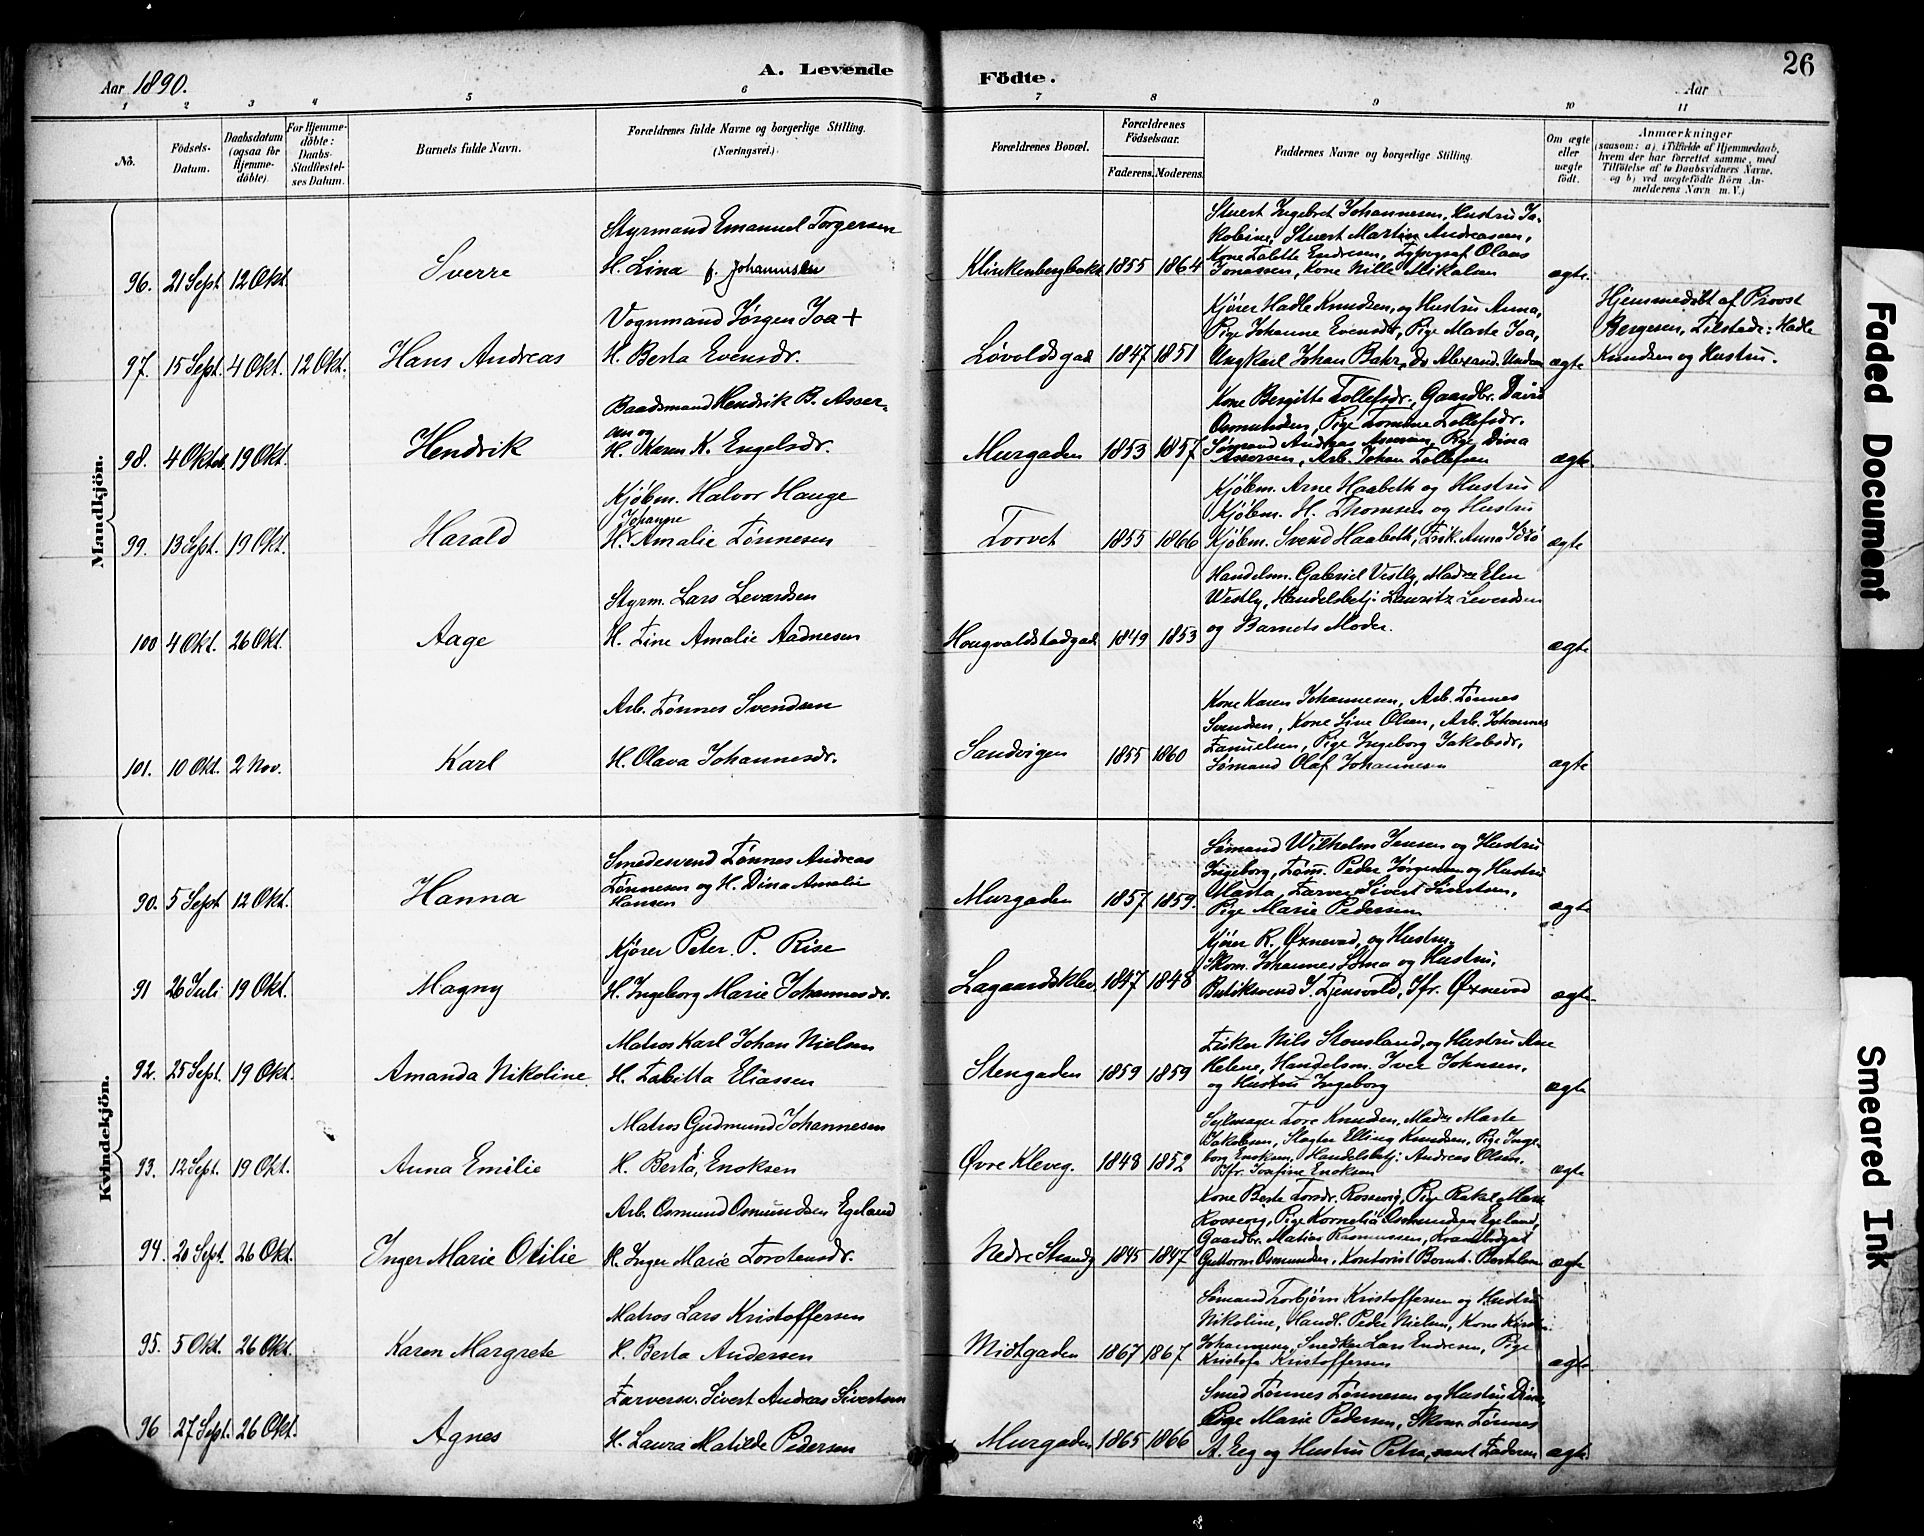 Aar 1890.
A. Levende
Födte.
26
Aar
1 2 3 4 5 6 7 8 9 10 11
No.
Födsels-Datum.
Daabsdatum (ogsaa for Hjemme-döbte).
For Hjemme-döbte: Daabs-Stadfæstel-ses Datum.
Barnets fulde Navn.
Forældrenes fulde Navne og borgerlige Stilling.
(Næringsvei.)
Forældrenes Bopæl.
Forældrenes Födselsaar.
Faderens. Moderens.
Faddernes Navne og borgerlige Stilling.
Om ægte eller uægte født.
Anmærkninger
(saasom: a) i Tilfælde af Hjemmedaab,
hvem der har forrettet samme, med
Tilføielse af to Daabsvidners Navne.
og b) ved uægtefödte Börn An-
melderens Navn m. V.)
Mandkjön.
Styrmand Emanuel Torgersen
H. Lina f. Johannesen
96. 21 Sept 12 Okt. Sverre
Klinkenbergbakk. 1855 1864
Stuert Ingebret Johannesen, Hustru Ja-
kobine, Stuert Martin Andreassen,
Kone Tolette Endresen, Typograf Olaus
Jonassen, Kone Nille Mikalsen
ægte.
Vognmand Jørgen Joa +
H. Berta Evensdr.
97. 15 Sept. 4 Okt. 12 Okt. Hans Andreas
Løvoldsgad. 1847 1851
Kjører Hadle Knudsen, og Hustru Anna,
Pige Johanne Evensdt, Pige Marte Joa,
Ungkarl Johan Bakr, Do Alexand.
ægte
Hjemmedøbt af Provst
Bergesen, Tilstede: Hadle
Knudsen og Hustru.
Baadsmand Hendrik B. Asser-
sen og
H. Karen K. Engelsdr.
98. 4 Oktob. 19 Okt. Hendrik
Murgaden 1853 1857
Kone Bergitte Tollefsdr., Gaardbr. David
Osmundsen, Pige Tomine Tollefsdr.
Sømand Andreas Assersen, Pige Dina
Assersen, Arb. Johan Tollefsen
ægte.
Kjøbm. Halvor Hauge
Johanne
H. Amalie Tønnesen
99. 13 Sept. 19 Okt. Harald
Torvet 1855 1866
Kjøbm. Arne Haabeth og Hustru
Kjøbm. H. Thomsen og Hustru
Kjøbm. Svend Haabeth, Frøk. Anna Idsø
ægte
Styrm. Lars Levardsen
H. Tine Amalie Aadnesen
100 4 Okt. 26 Okt. Aage
Hougvaldstadgad. 1849 1853
Handelsm. Gabriel Vestly, Madm Elen
Westly, Handelsbetj: Lauritz Leverdsen
og Barnets Moder.
ægte
Arb. Tønnes Svendsen
H. Olava Johannesdr.
101. 10 Okt. 2 Nov. Karl
Sandvigen 1855 1860
Kone Karen Johannesen, Arb. Tønnes
Svendsen, Kone Sine Olsen, Arb. Johannes
Fanuelsen, Pige Ingeborg Jakobsdr,
Sømand Olaf Johannesen
ægte
Kvindekjön.
Smedesvend Tønnes Andreas
Tønnesen og H. Dina Amalie
Hansen
90. 5 Sept 12 Okt. Hanna
Murgaden 1857 1859.
Sømand Wilhelm Jensen og Hustru
Ingeborg, Tøm. Peder Jørgensen og Hustru
Marta, Farver Sivert Sivertsen,
Pige Marie Pedersen
ægte
Kjører Peter. P. Rise
H. Ingeborg Marie Johannesdr.
91 26 Juli 19 Okt. Magny
Lagaardsklev. 1847 1848
Kjører R. Øxnevad, og Hustru
Skom. Johannes Joma og Hustru,
Butiksvend J. Tjensvold, Jfr. Øxnevad
ægte.
Matros Karl Johan Nielsen
H. Tabitta Eliassen
92. 25 Sept. 19 Okt. Amanda Nikoline
Stengaden 1859 1859
Fisker Nils Stousland, og Hustru Ane
Helene, Handelsm. Iver Johnsen,
og Hustru Ingeborg
ægte
Matros Gudmund Johannesen
H. Berta Enoksen
93. 12 Sept. 19 Okt. Anna Emilie
Øvre Kleveg. 1848 1852
Seilmager Tore Knudsen, Madm Marte
Jakobsen, Slagter Elling Knudsen, Pige Inge-
borg Enoksen, Handelsbetj: Andreas Olsen.
Jfr. Josefine Enoksen
ægte
Arb. Osmund Osmundsen Egeland
H. Inger Marie Torstensdr.
94. 20 Sept. 26 Okt. Inger Marie Otilie
Nedre Strandg 1845 1847
Kone Berte Torsdr. Rossevig, Pige Rakel Marie
Rossevig, Pige Kornelia Osmundsen Egeland,
Gaardbr. Matias Rasmussen,
Guttorm Osmundsen, Kontorist Bernt. Bertelsen
ægte
Matros Lars Kristoffersen
H. Berta Andersen
95. 5 Okt. 26 Okt. Karen Margrete
Midtgaden 1867 1867
Sømand Torbjørn Kristoffersen og Hustru
Nikoline, Handl. Peder Nielsen, Kone Kirst.
Johannesen, Snedker Lars Endresen, Pige
Kristofa Kristoffersen
ægte
Farversv. Sivert Andreas Sivertsen
H. Laura Matilde Pedersen
96 27 Sept. 26 Okt. Agnes
Murgaden 1865 1866
Smed Tønnes Tønnesen og Hustru Dina,
Pige Marie Pedersen, Skom. Tønnes
A. Eeg og Hustru Petra, samt Faderen
ægte
Faded Document
Smeared Ink